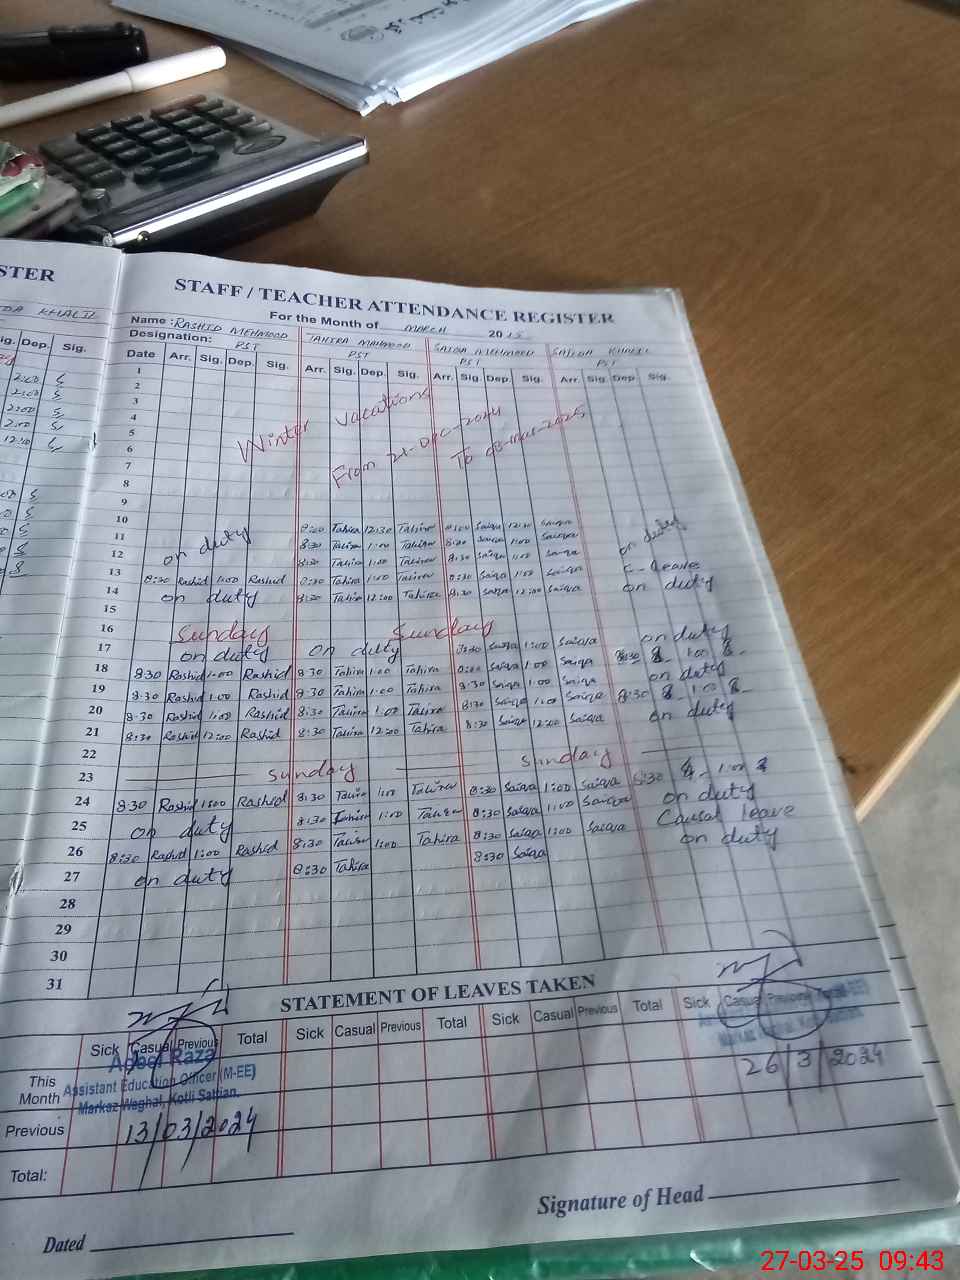 STER
STAFF / TEACHER ATTENDANCE REGISTER
For the Month of MARCH 20
KHALIL
Name : RASHID MEHMOOD TAHIRA MAHMOOD SAIQA MEHMOOD SAIDA KHALIL
Designation: PST PST PST PST
ig. Dep. Sig.
Date Arr. Sig. Dep. Sig. Arr. Sig. Dep. Sig. Arr. Sig. Dep. Sig. Arr. Sig. Dep. Sig.
1
2
3
4
5
6
7
8
Winter vacations
From 21-Dec-2024 To
9
10 8:30 Tahira 12:30 Tahira 8:30 Saiqa 12:30 Saiqa
11 on duty 8:30 Tahira 1:00 Tahira 8:30 Saiqa 1:00 Saiqa on duty
12 8:30 Tahira 1:00 Tahira 8:30 Saiqa 1:00 Saiqa
13 8:30 Rashid 1:00 Rashid 8:30 Tahira 1:00 Tahira 8:30 Saiqa 1:00 Saiqa C-leave
14 on duty 8:30 Tahira 12:00 Tahira 8:30 Saiqa 12:00 Saiqa on duty
15
16 Sunday Sunday
17 on duty on duty 8:30 Saiqa 1:00 Saiqa on duty
18 8:30 Rashid 1:00 Rashid 8:30 Tahira 1:00 Tahira 8:30 Saiqa 1:00 Saiqa 8:30 1:00
19 8:30 Rashid 1:00 Rashid 8:30 Tahira 1:00 Tahira 8:30 Saiqa 1:00 Saiqa on duty
20 8:30 Rashid 1:00 Rashid 8:30 Tahira 1:00 Tahira 8:30 Saiqa 1:00 Saiqa 8:30 1:00
21 8:30 Rashid 12:00 Rashid 8:30 Tahira 12:00 Tahira 8:30 Saiqa 12:00 Saiqa on duty
22
23 Sunday Sunday
24 8:30 Rashid 1:00 Rashid 8:30 Tahira 1:00 Tahira 8:30 Saiqa 1:00 Saiqa 8:30 1:00
25 on duty 8:30 Tahira 1:00 Tahira 8:30 Saiqa 1:00 Saiqa on duty
26 8:30 Rashid 1:00 Rashid 8:30 Tahira 1:00 Tahira 8:30 Saiqa 1:00 Saiqa Causal leave
27 on duty 8:30 Tahira 8:30 Saiqa on duty
28
29
30
31
STATEMENT OF LEAVES TAKEN
Sick Casual Previous Total Sick Casual Previous Total Sick Casual Previous Total Sick Casual Previous Total
Raza
This Month
Assistant Education Officer (M-EE)
Markaz Waghal, Kotli Sattian.
26/3/2024
Previous
13/03/2024
Total:
Signature of Head
Dated
27-03-25 09:43